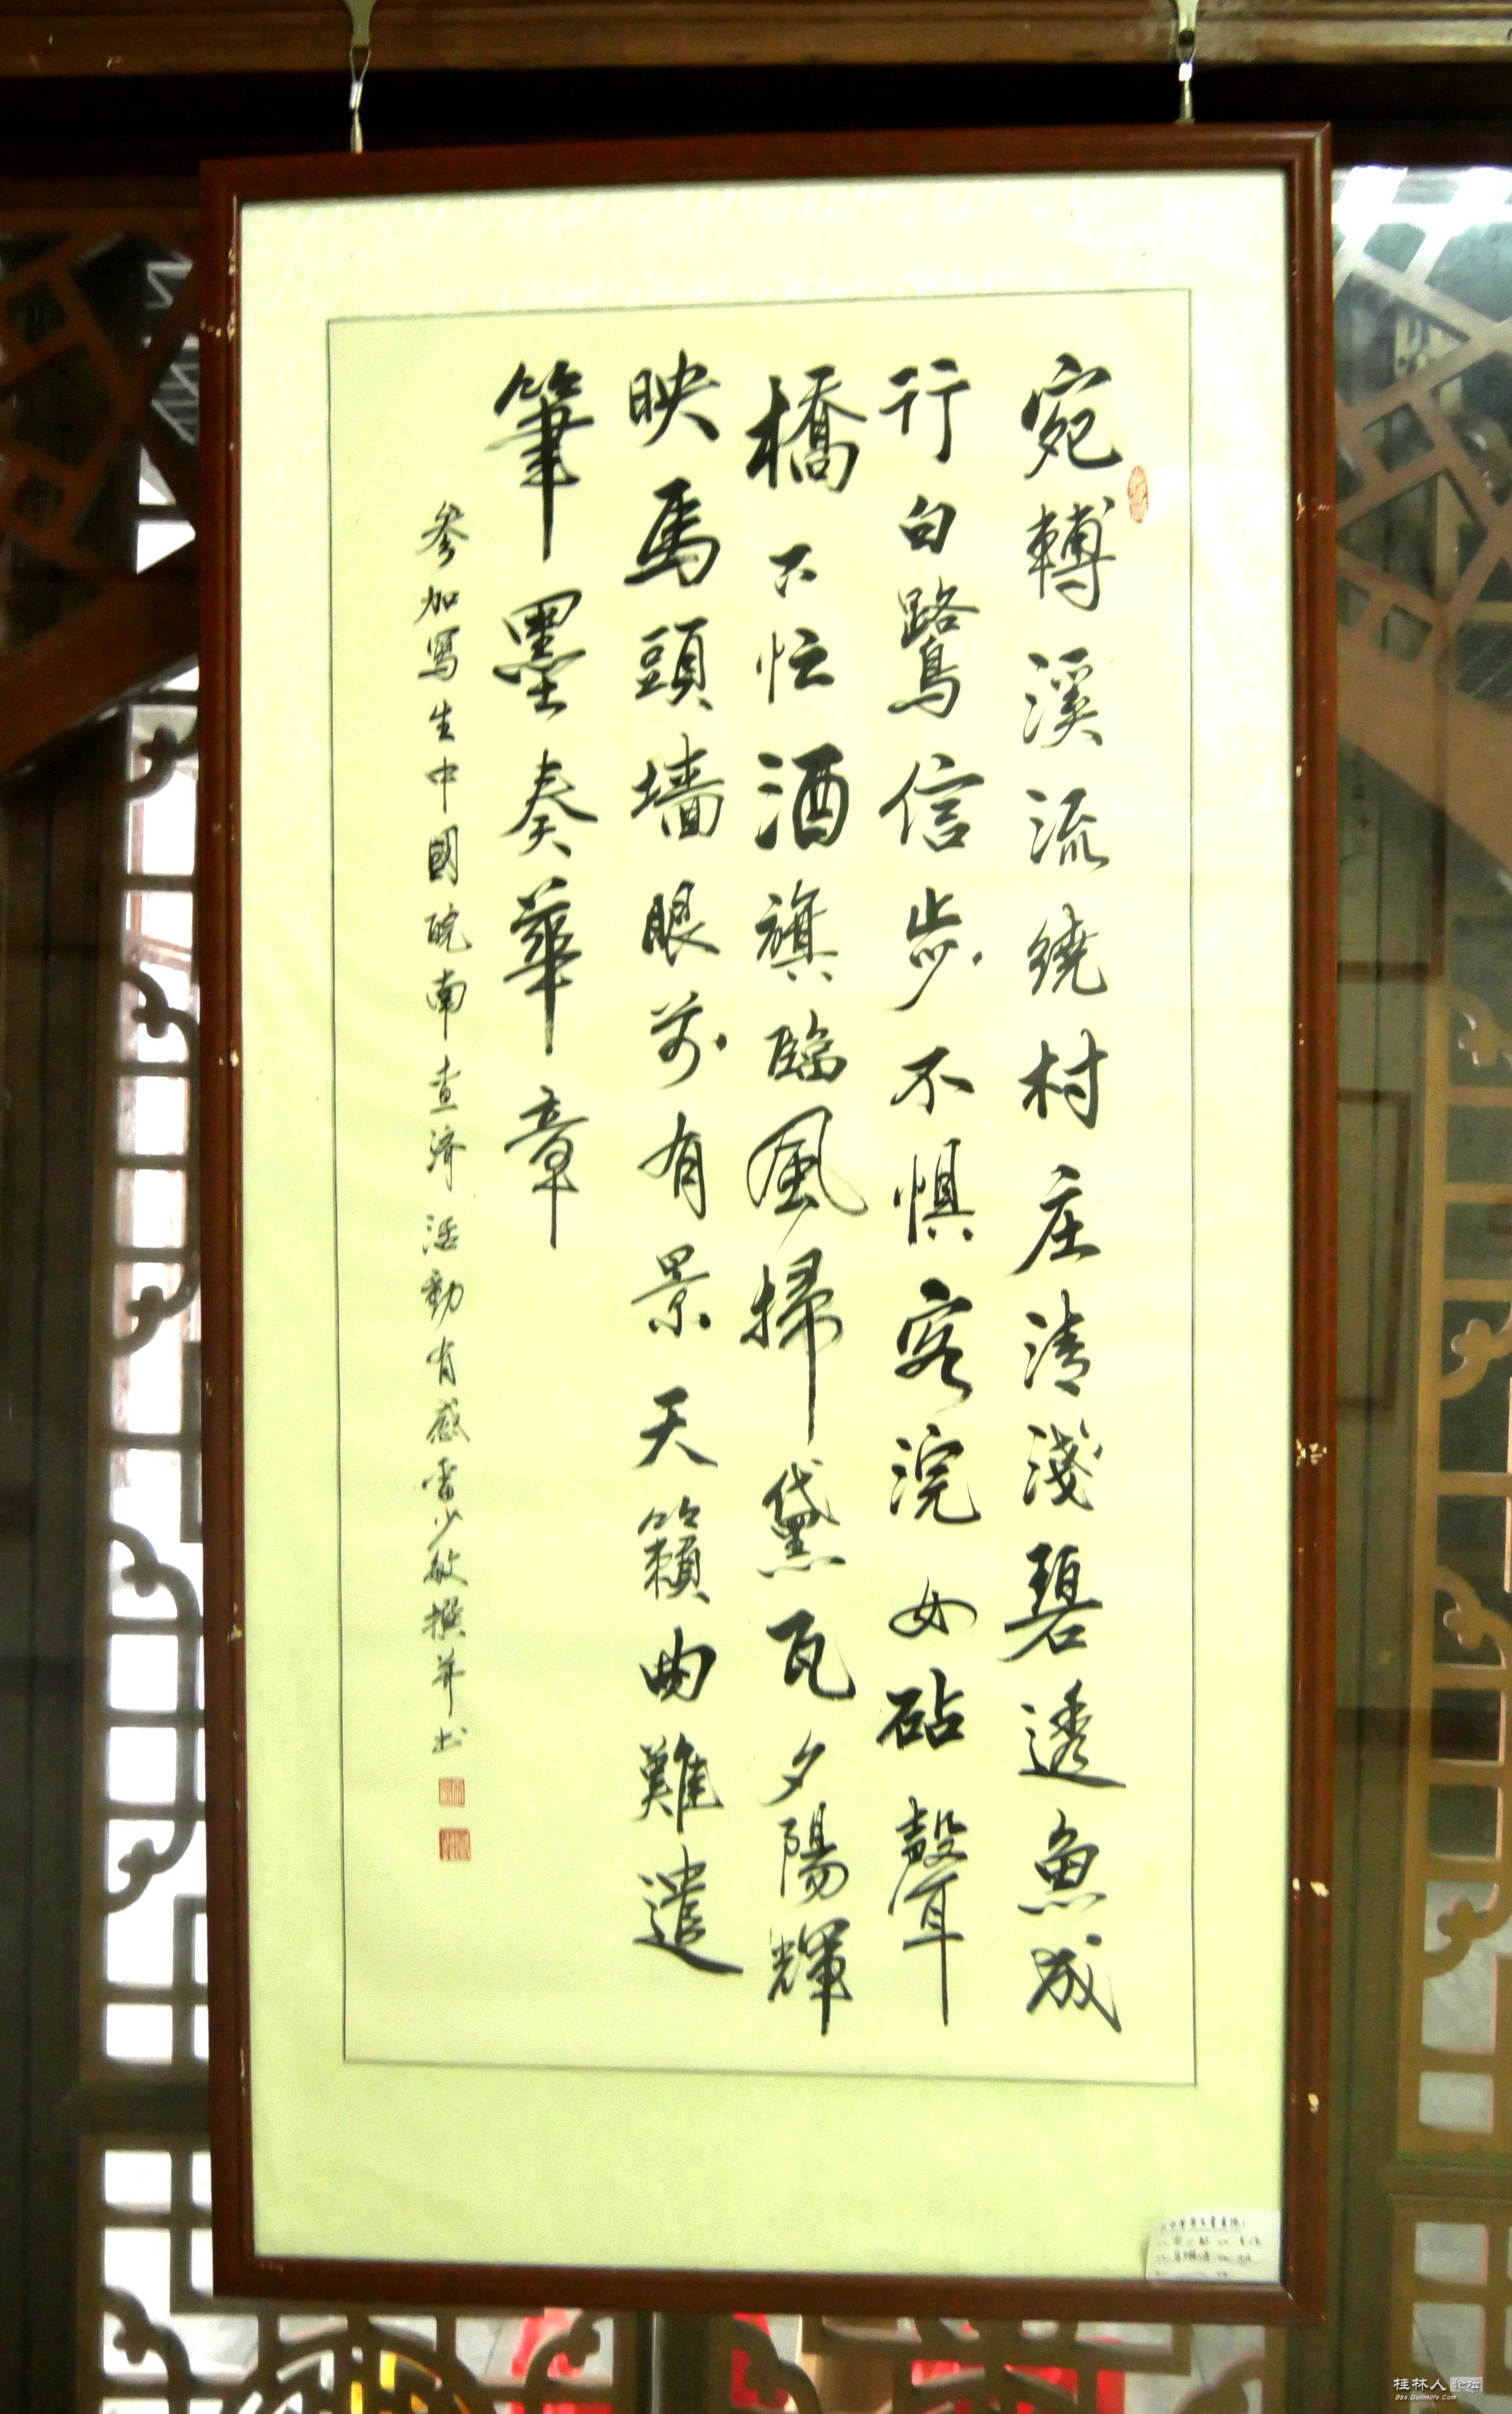 宛轉溪流繞村庄清淺碧透魚成
行白鷺信步不懼客浣女砧聲
橋下忙酒旗臨風掃黛瓦夕陽輝
映馬頭墻眼前有景天籟曲難遣
筆墨奏華章
參加寫生中國皖南查濟活動有感雷少敏撰并书
桂林人论坛
Bbs.Guilinlife.Com